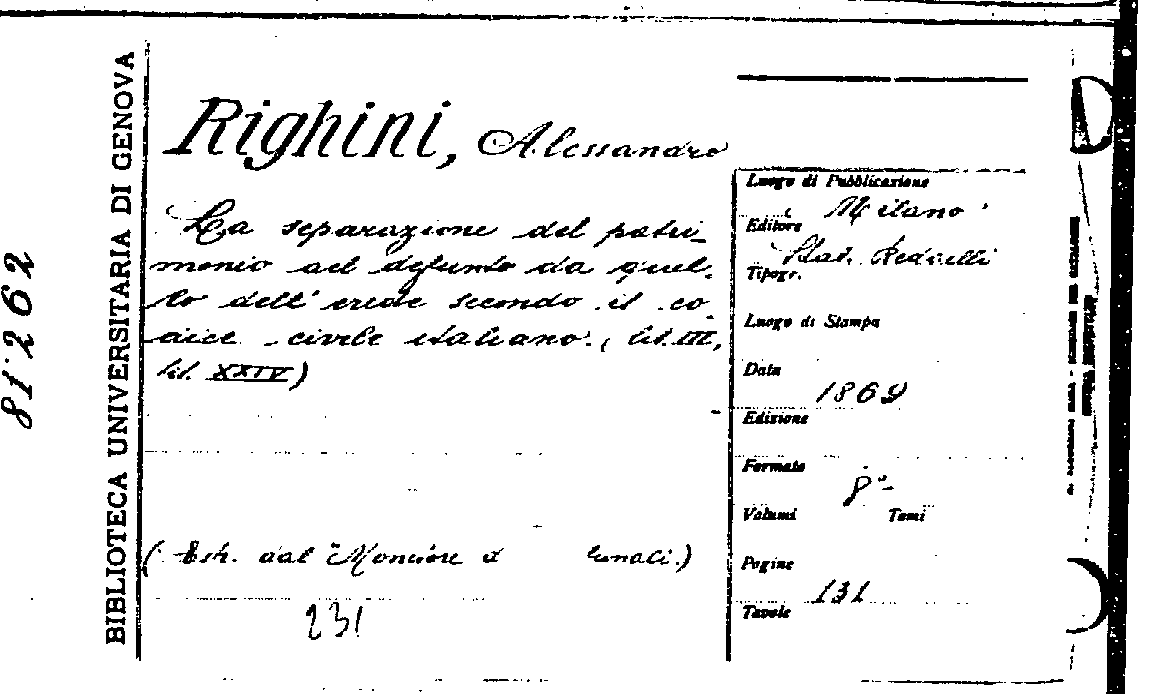 81262
BIBLIOTECA UNIVERSITARIA DI GENOVA
Righini, Alessandro
La separazione del patri-
monio del defunto da quel-
lo dell' erede secondo il co-
dice civile italiano. (lib. III,
tit. XXIV)
(Estr. dal "Monitore d
231
Luogo di Pubblicazione
Milano
Editore
Stab. Redaelli
Tipogr.
Luogo di Stampa
Data
1869
Edizione
Formato
8°-
Volumi Tomi
Pagine
131
Tavole